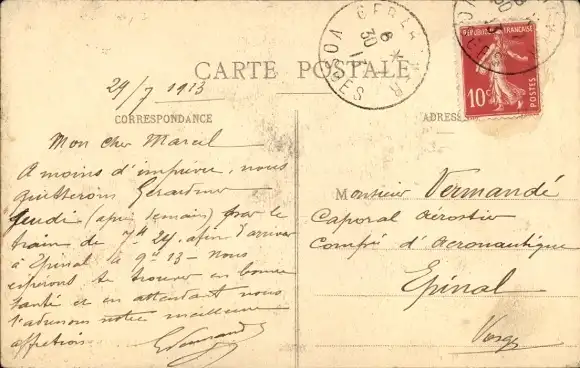 CARTE POSTALE
GERARDMER
VOSGES
6
30
REPUBLIQUE FRANÇAISE
10c
POSTES
29/7 1913
CORRESPONDANCE
ADRESSE
Mon cher Marcel
A moins d'imprévu, nous
quitterons Gérardmer
Jeudi (après demain) par le
train de 7h 24, afin d'arriver
à Epinal à 9h 13 - Nous
espérons te trouver en bonne
santé et en attendant nous
t'adressons notre meilleure
affection
Monsieur Vermandé
Caporal Aérostier
Compie d'Aéronautique
Epinal
Vosges